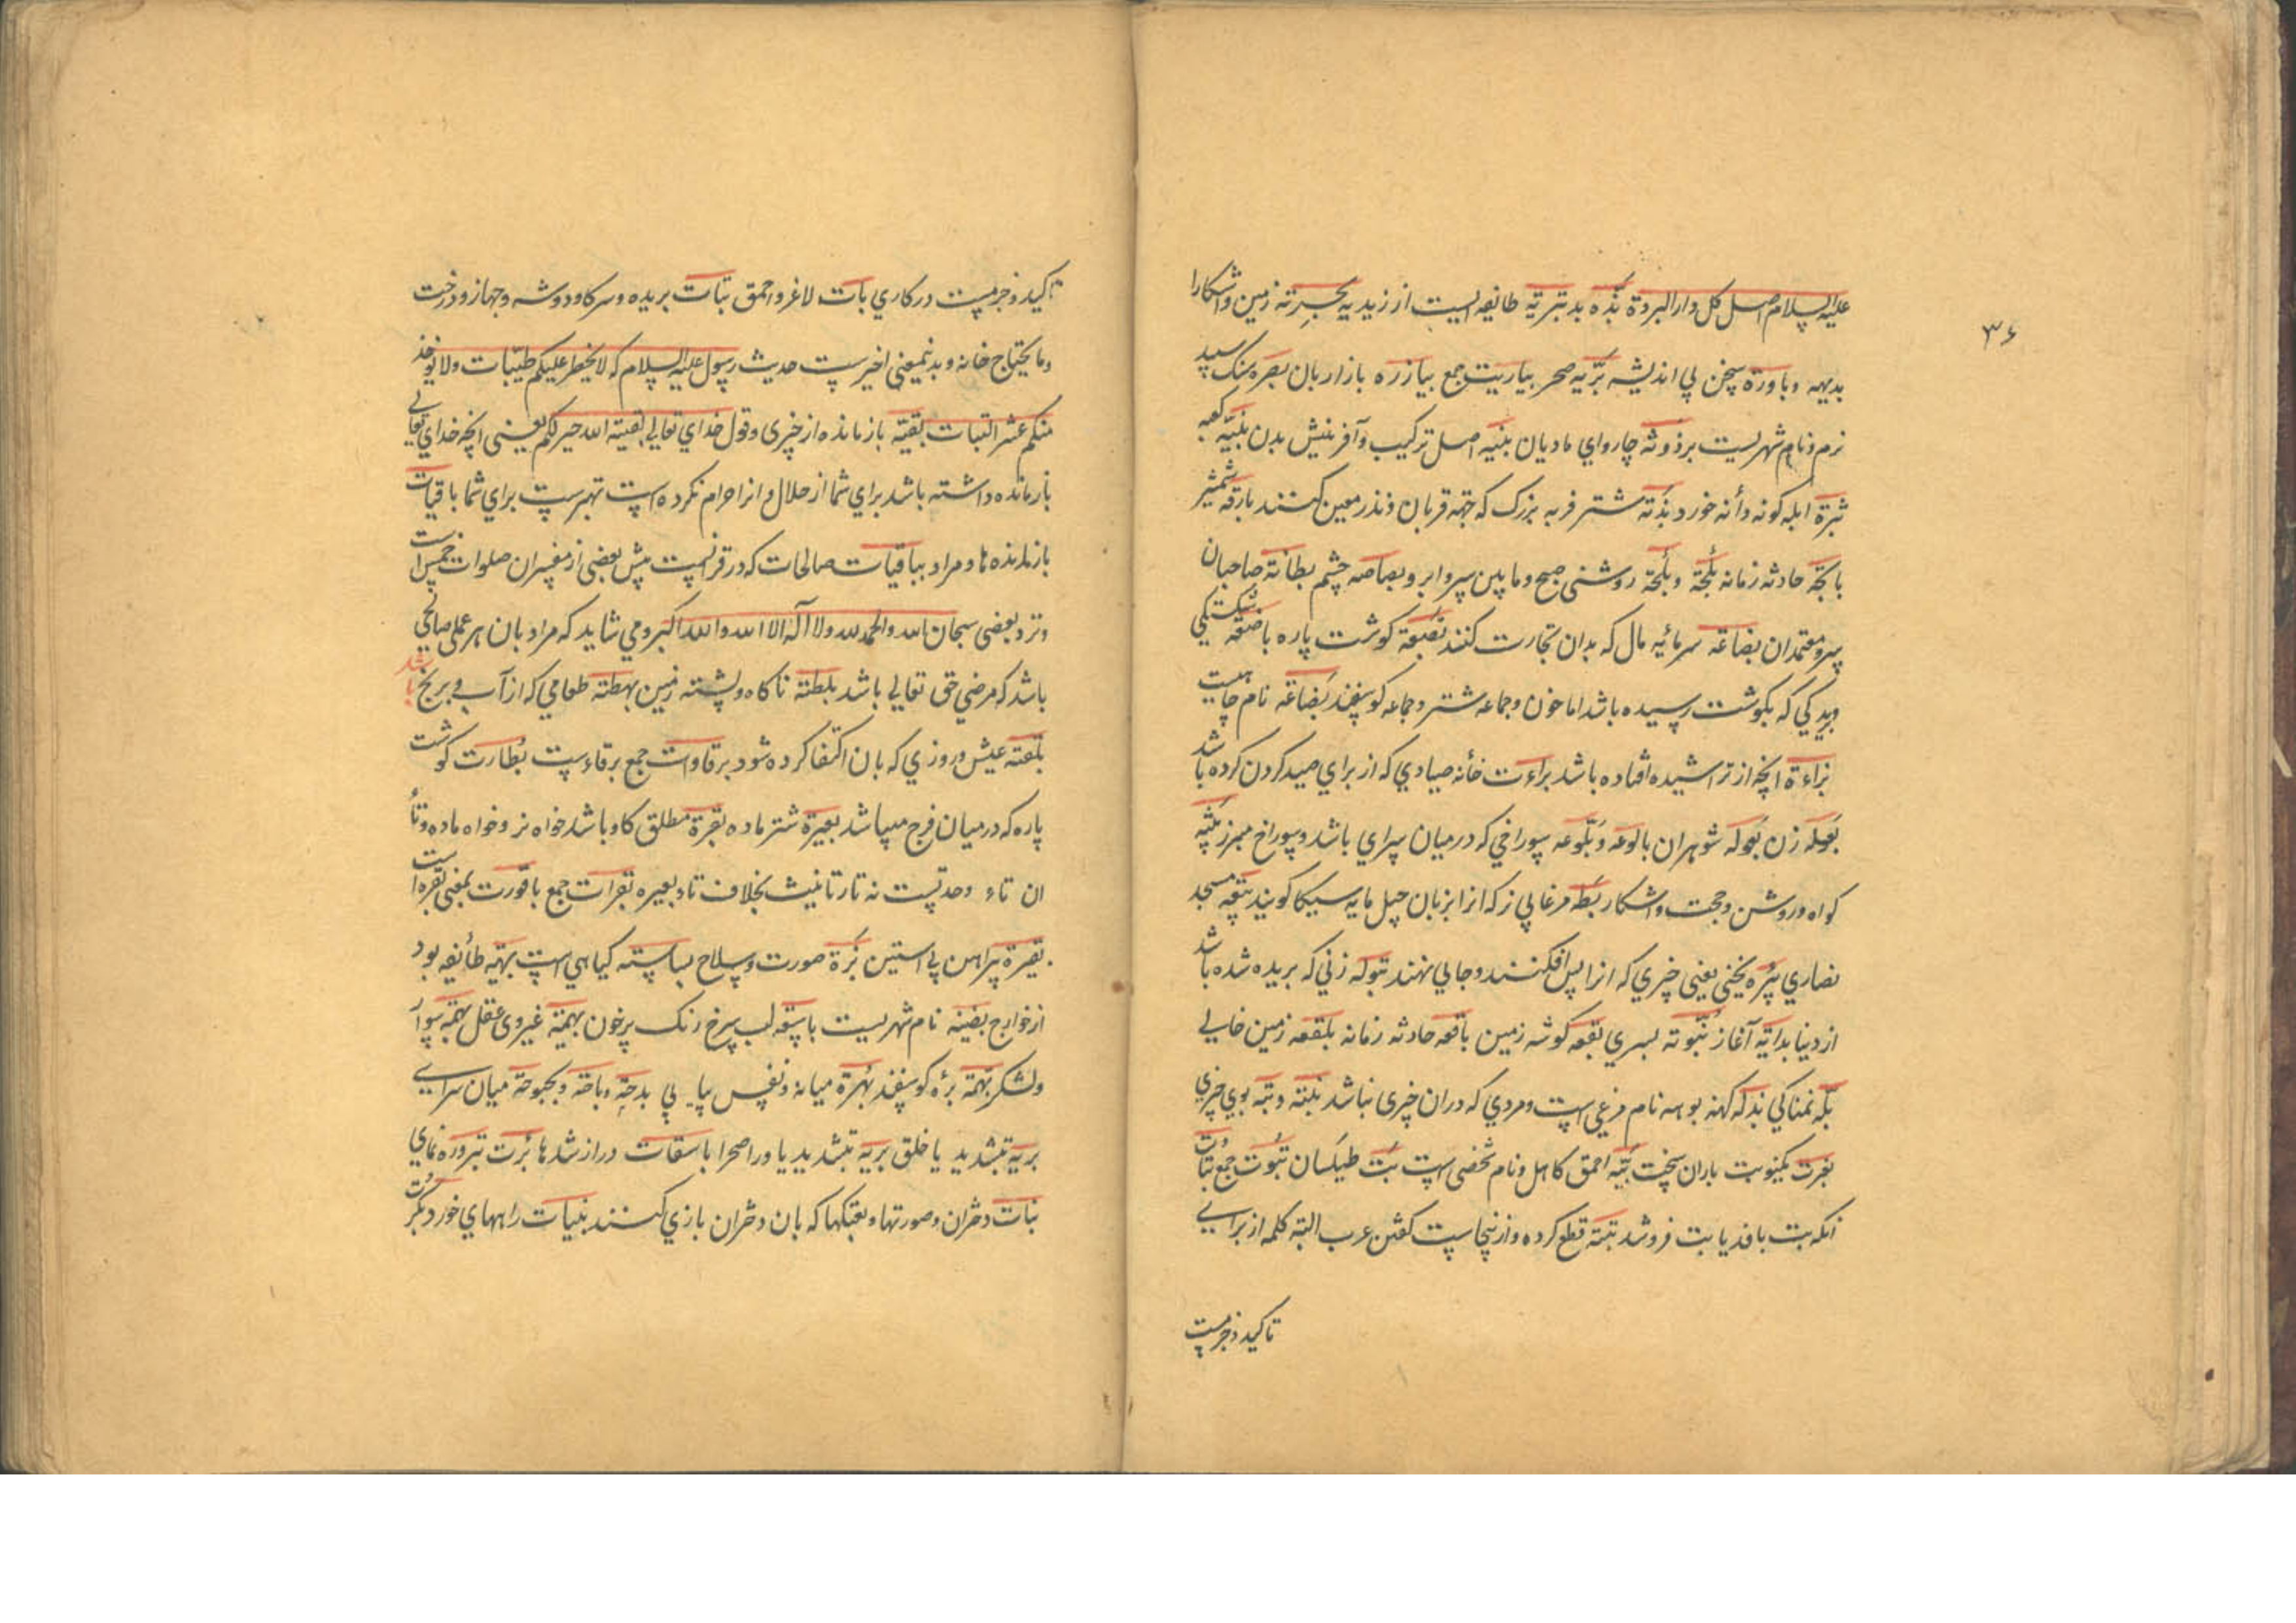 ۳۶
علیه السلام اصل کل دار البردة بذه بد بتریة طایفه ایست از زیدیه بحیرته زمین و اشکارا
بدیهه و باورة سخن بی اندیشه بریه صحرا بیازرت جمع بیازره بازاربان بصره سنک سپید
نرم و نام شهریست برذونه چاروای مادیان بنیه اصل ترکیب و آفرینش بدن بنیه کعبه
بثرة ابله کونه و دانه خورد بدنه شتر فربه بزرک که جهة قربان و نذر معین کنند بارقه شمشیر
بایجه حادثه زمانه بلجة و بلجة روشنی صبح و مابین سر و ابرو بصاصه چشم بطانة صاحبان
سر و معتمدان بضاعه سرمائیه مال که بدان تجارت کنند بضعة کوشت پاره باضعه شکستکی
ویدکی که بکوشت رسیده باشد اما خون و جماعه شتر و جماعه کوسفند بضاعه نام چاهیست
براءة انچه از تراشیده افتاده باشد براءت خانه صیادی که از برای صید کردن کرده باشد
بعوله زن بعوله شوهران بالوعه و بلوعه سوراخی که درمیان سرای باشد و سوراخ مبرز بینه
کواه و روشن و حجت و اشکار بطه مرغابی نر که انرا بزبان جیل مایه سیکا کویند بیعه مسجد
نصاری بئره یخنی یعنی چیزی که انرا پس افکنند و جایی نهند بتوله زنی که بریده شده باشد
از دنیا بدایة آغاز بنوته بسری بقعه کوشه زمین باقعه حادثه زمانه بلقعه زمین خالی
بله نمناکی بذله کهنه بوهه نام مرغی است و مردی که دران خیری نباشد بنه و بنه بوی چیزی
بغرت یکنوبت باران سخت بیه احمق کاهل و نام شخصی است بت طیلسان بتوت جمع بتات
انکه بت بافد یا بت فروشد بتة قطع کرده و ازینجاست کفتن عرب البته کلمه از برای
تاکید و جزمست
تاکید و جزمست در کاری بات لاغر و احمق بتات بریده و سرکاو دوشه و جهاز و درخت
و ما یحتاج خانه و بدینمعنی اخیرست حدیث رسول علیه السلام که لا یحظر علیکم طیبات ولا یوخذ
منکم عشر البتات بقیة بازمانده از چیزی و قول خدای تعالی بقیة الله خیر لکم یعنی انچه خدای تعالی
بازمانده داشته باشد برای شما از حلال و انرا حرام نکرده است بهترست برای شما باقیات
بازمانده ها و مراد بباقیات صالحات که در قرانست پیش بعضی از مفسران صلوات خمس است
و نزد بعضی سبحان الله والحمد لله ولا اله الا الله والله اکبر و می شاید که مراد بان هر عمل صالحی
باشد که مرضی حق تعالی باشد بلطته ناکاه و پشته زمین بهطة طعامی که از آب و برنج باشد
بلغته عیش و روزی که بان اکتفا کرده شود برقاوات جمع برقاءست بظارت کوشت
پاره که درمیان فرج میباشد بعیرة شتر ماده بقرة مطلق کاو باشد خواه نر و خواه ماده و تا
ان تاء وحدتست نه تاء تانیث بخلاف تاء بعیره بقرات جمع باقورت بمعنی بقره است
بقیرة پیراهن بی استین بزة صورت و سلاح بسباسته کیاهی است بهیه طائفه بود
از خوارج بضینه نام شهریست باسقه لب سرخ رنک پرخون بهیمة غیر ذوی عقل بهمه سوار
و لشکر بهمة بره کوسفند بهرة میانه و نفس پیاپی بدجة و باحة و بحبوحة میان سرای
بریة بتشدید یا خلق بریة بتشدید یا و را صحرا باسقات دراز شدها برت تبروره نمای
بنات دختران و صورتها و لعبتکها که بان دختران بازی کنند بنیات راههای خورد بکرت